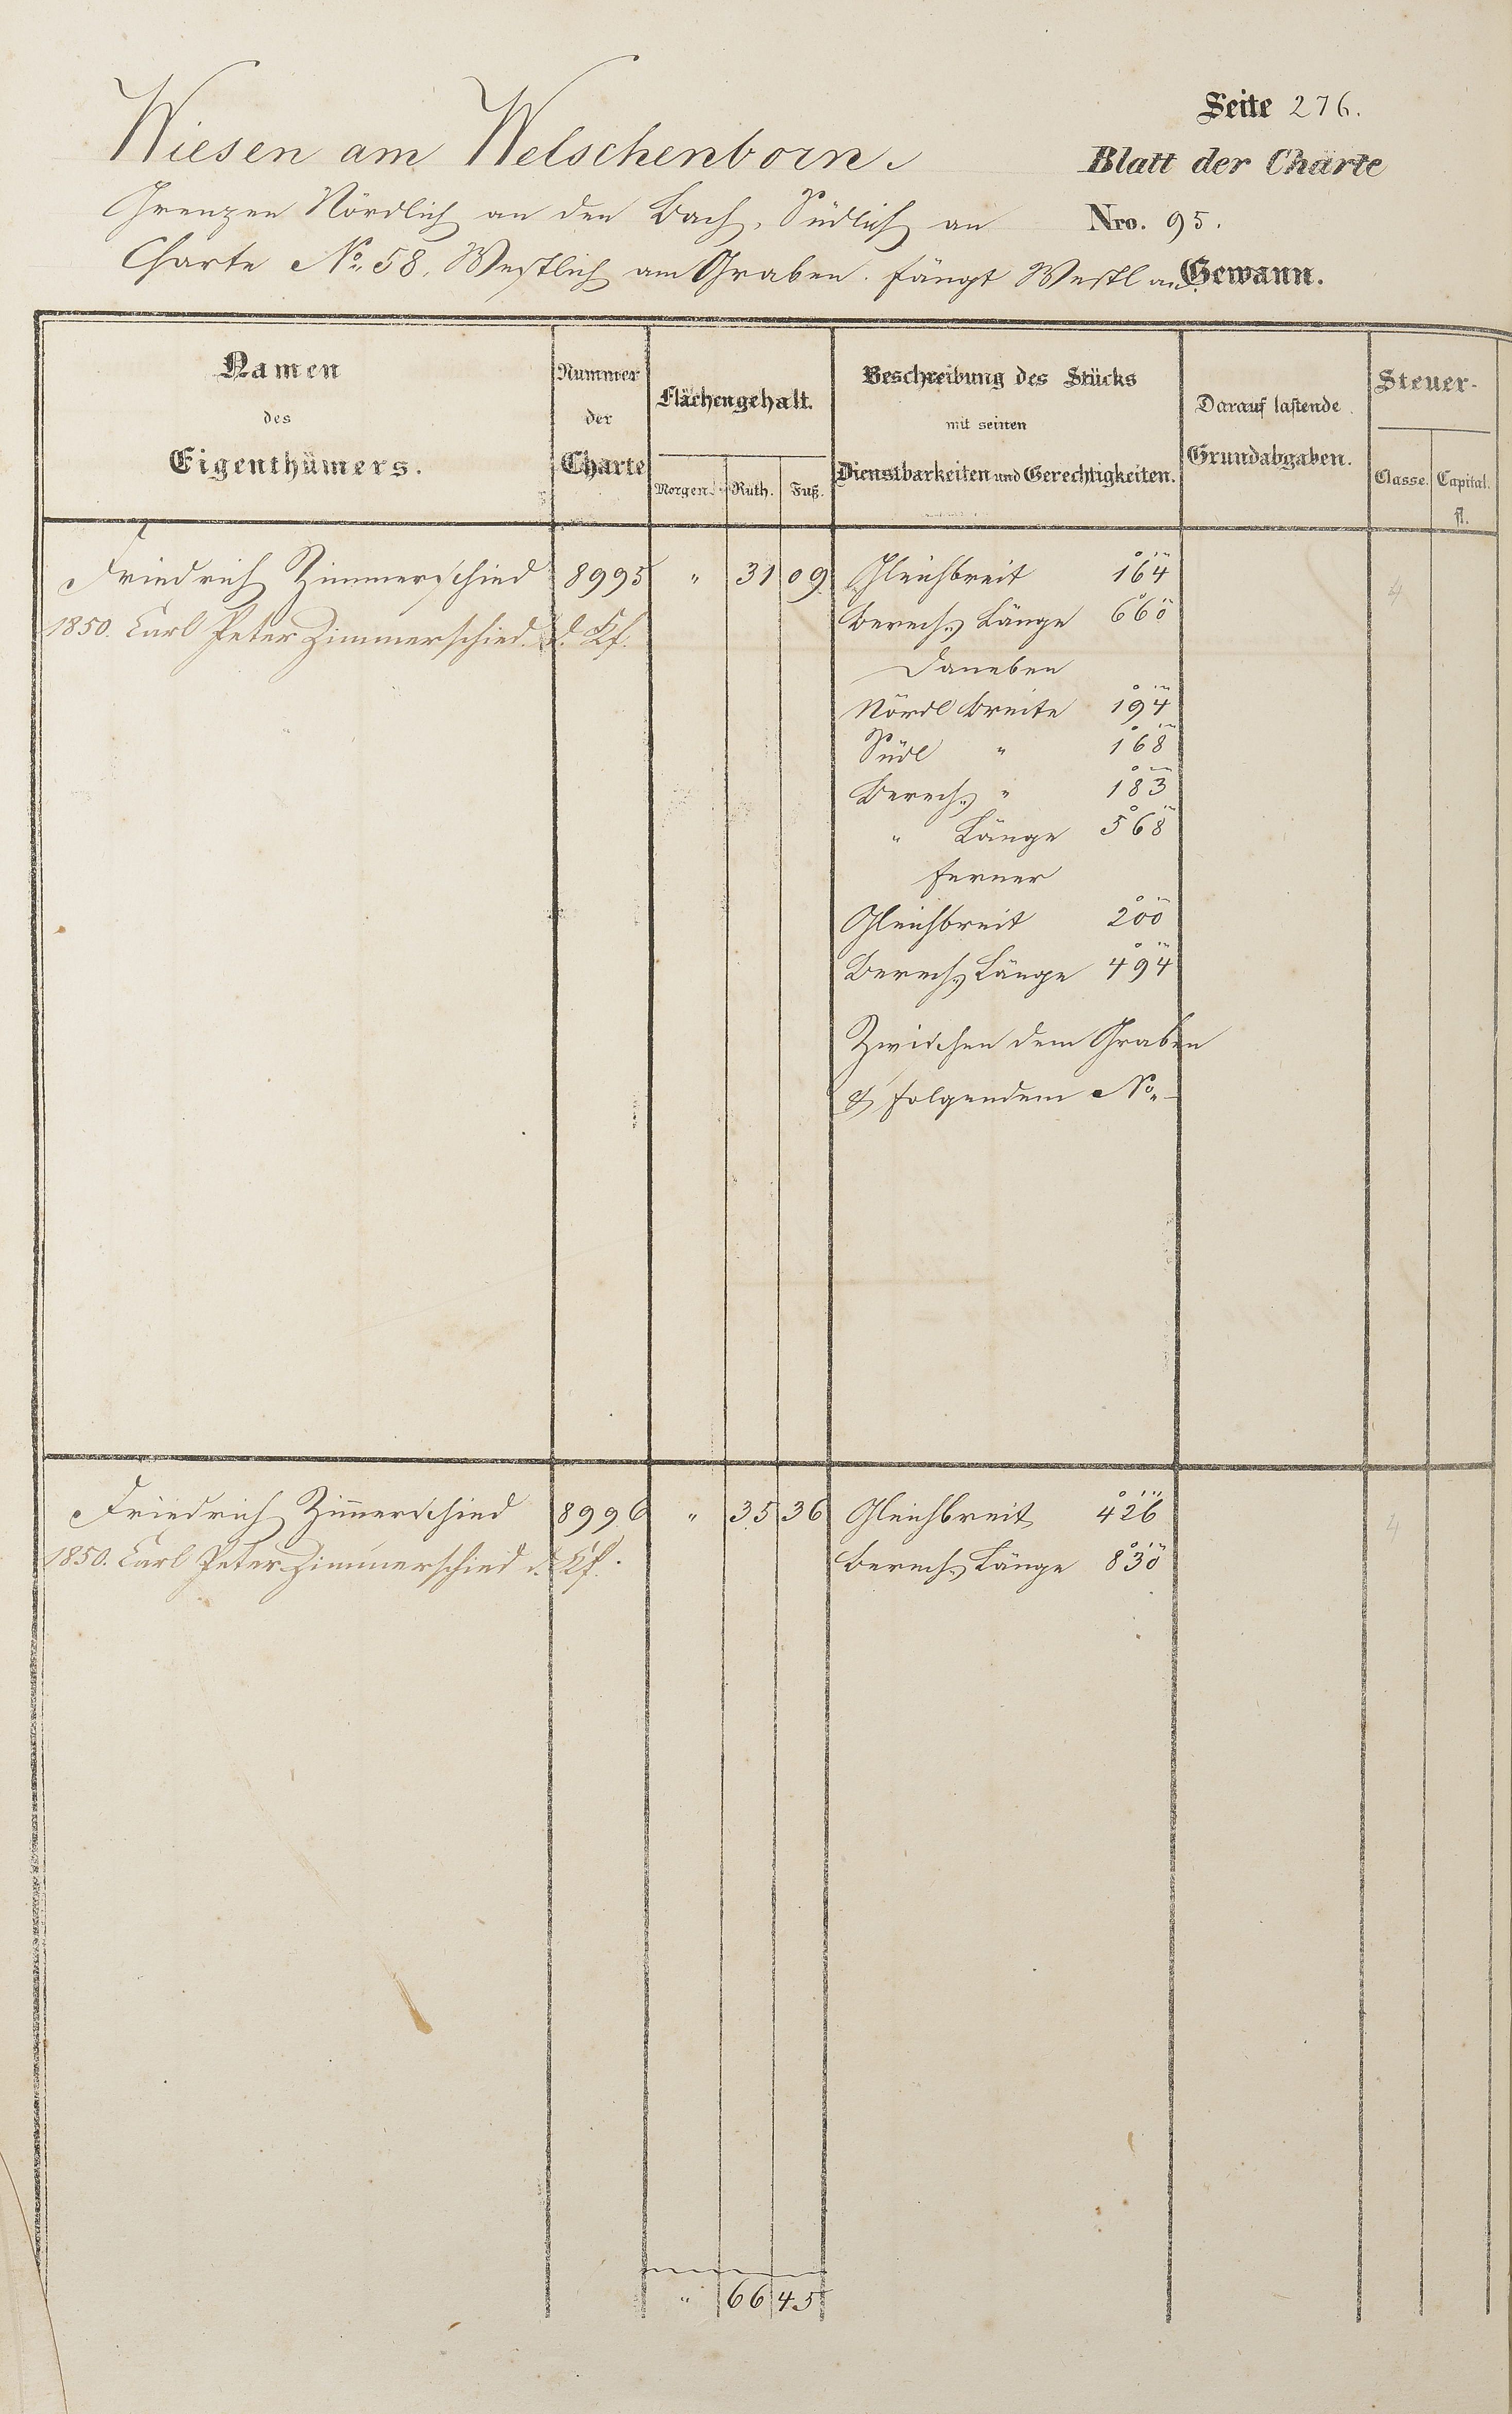 Seite 276.
Wiesen am Welschenborn.
Blatt der Charte
Grenzen Nördlich an den Bach, Südlich an
Nro. 95.
Charte No. 58, Westlich am Graben. fängt Westl an.
Gewann.
Namen des Eigenthümers.
Nummer der Charte
Flächengehalt.
Morgen. Ruth. Fuß.
Beschreibung des Stücks
mit seinen
Dienstbarkeiten und Gerechtigkeiten.
Darauf lastende
Grundabgaben.
Steuer-
Classe. Capital.
fl.
Friedrich Zimmerschied 8995 " 31 09 Gleichbreit 164 4
1850. Carl Peter Zimmerschied. d. Kf. Berech. Länge 660
Daneben
Nördl Breite 194
Südl " 168
Berech. " 183
" Länge 568
ferner
Gleichbreit 200
Berech. Länge 494
Zwischen dem Graben
& folgendem No.
Friedrich Zimmerschied 8996 " 35 36 Gleichbreit 426 4
1850. Carl Peter Zimmerschied d. Kf. Berech. Länge 830
" 66 45